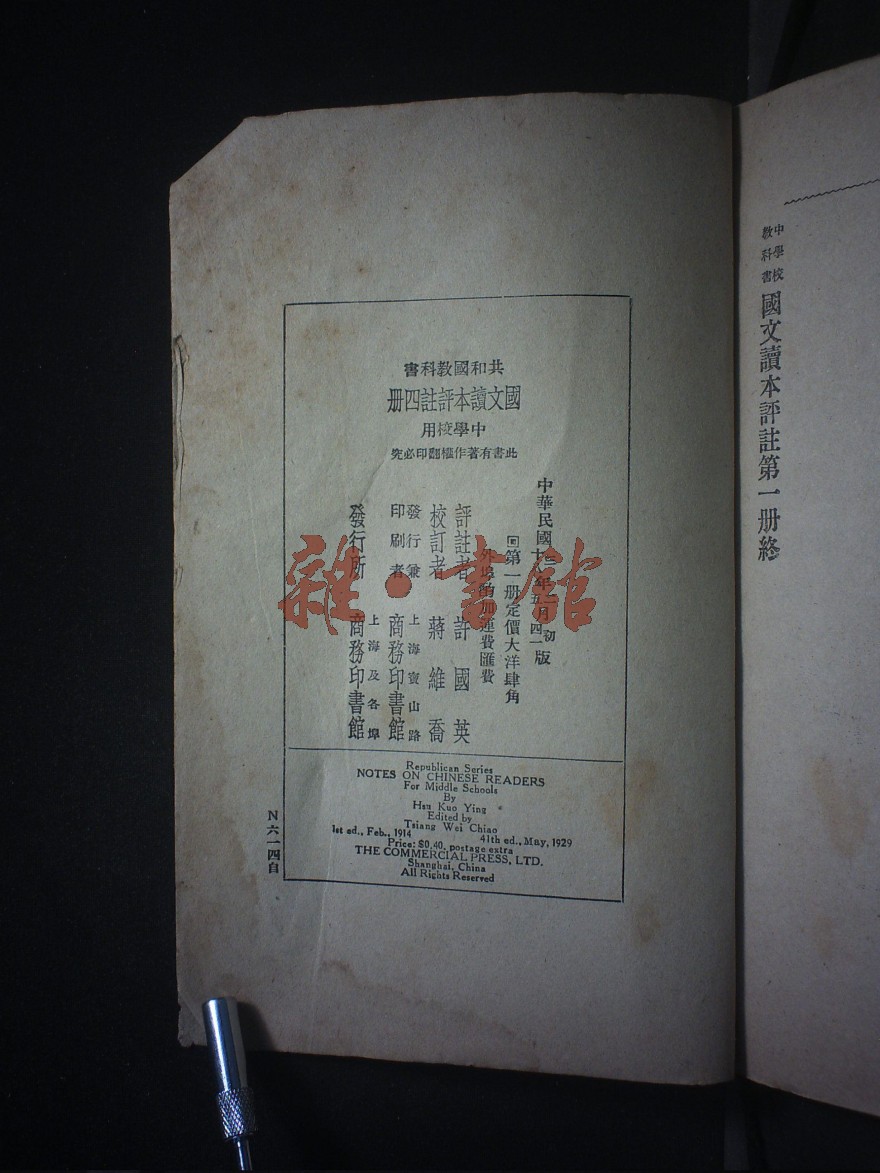 中學校
教科書
國文讀本評註第一册終
共和國教科書
國文讀本評註四册
中學校用
此書有著作權翻印必究
中華民國
版
第一册定價大洋肆角
外埠酌加運費匯費
評註者 許國英
校訂者 蔣維喬
發行兼
印刷者
上海寶山路
商務印書館
發行所
上海及各埠
商務印書館
Republican Series
NOTES ON CHINESE READERS
For Middle Schools
By
Hsu Kuo Ying
Edited by
Tsiang Wei Chiao
1st ed., Feb., 1914 41th ed., May, 1929
Price: $0.40, postage extra
THE COMMERCIAL PRESS, LTD.
Shanghai, China
All Rights Reserved
N六一四自
雜·書館